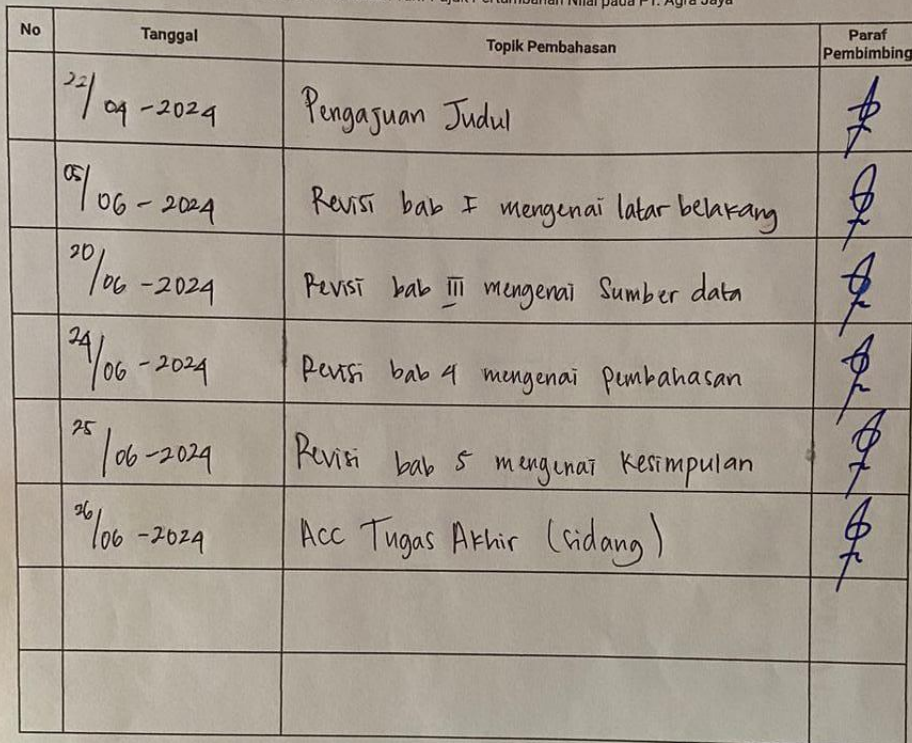 Pajak Pertambahan Nilai pada PT. Agra Jaya
No Tanggal Topik Pembahasan Paraf Pembimbing
22/04-2024 Pengajuan Judul
05/06-2024 Revisi bab I mengenai latar belakang
20/06-2024 Revisi bab III mengenai Sumber data
24/06-2024 Revisi bab 4 mengenai pembahasan
25/06-2024 Revisi bab 5 mengenai Kesimpulan
26/06-2024 Acc Tugas Akhir (sidang)